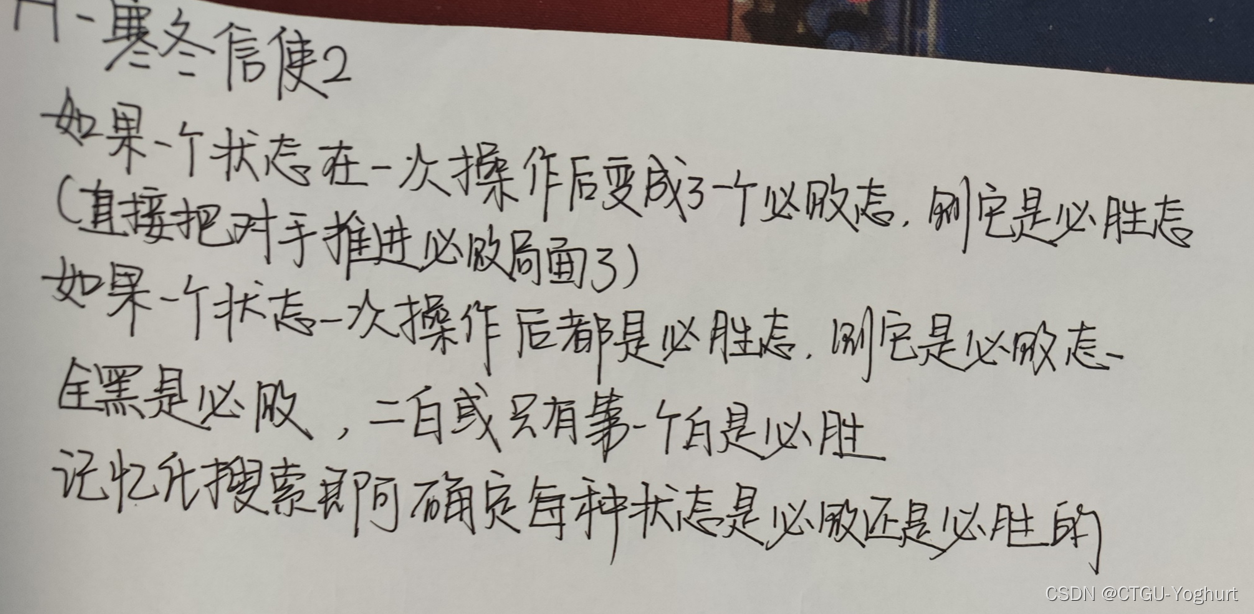 H-寒冬信使2
如果一个状态在一次操作后变成了一个必败态，则它是必胜态
（直接把对手推进必败局面了）
如果一个状态一次操作后都是必胜态，则它是必败态-
全黑是必败，二白或只有第一个白是必胜
记忆化搜索即可确定每种状态是必败还是必胜的
CSDN @CTGU-Yoghurt